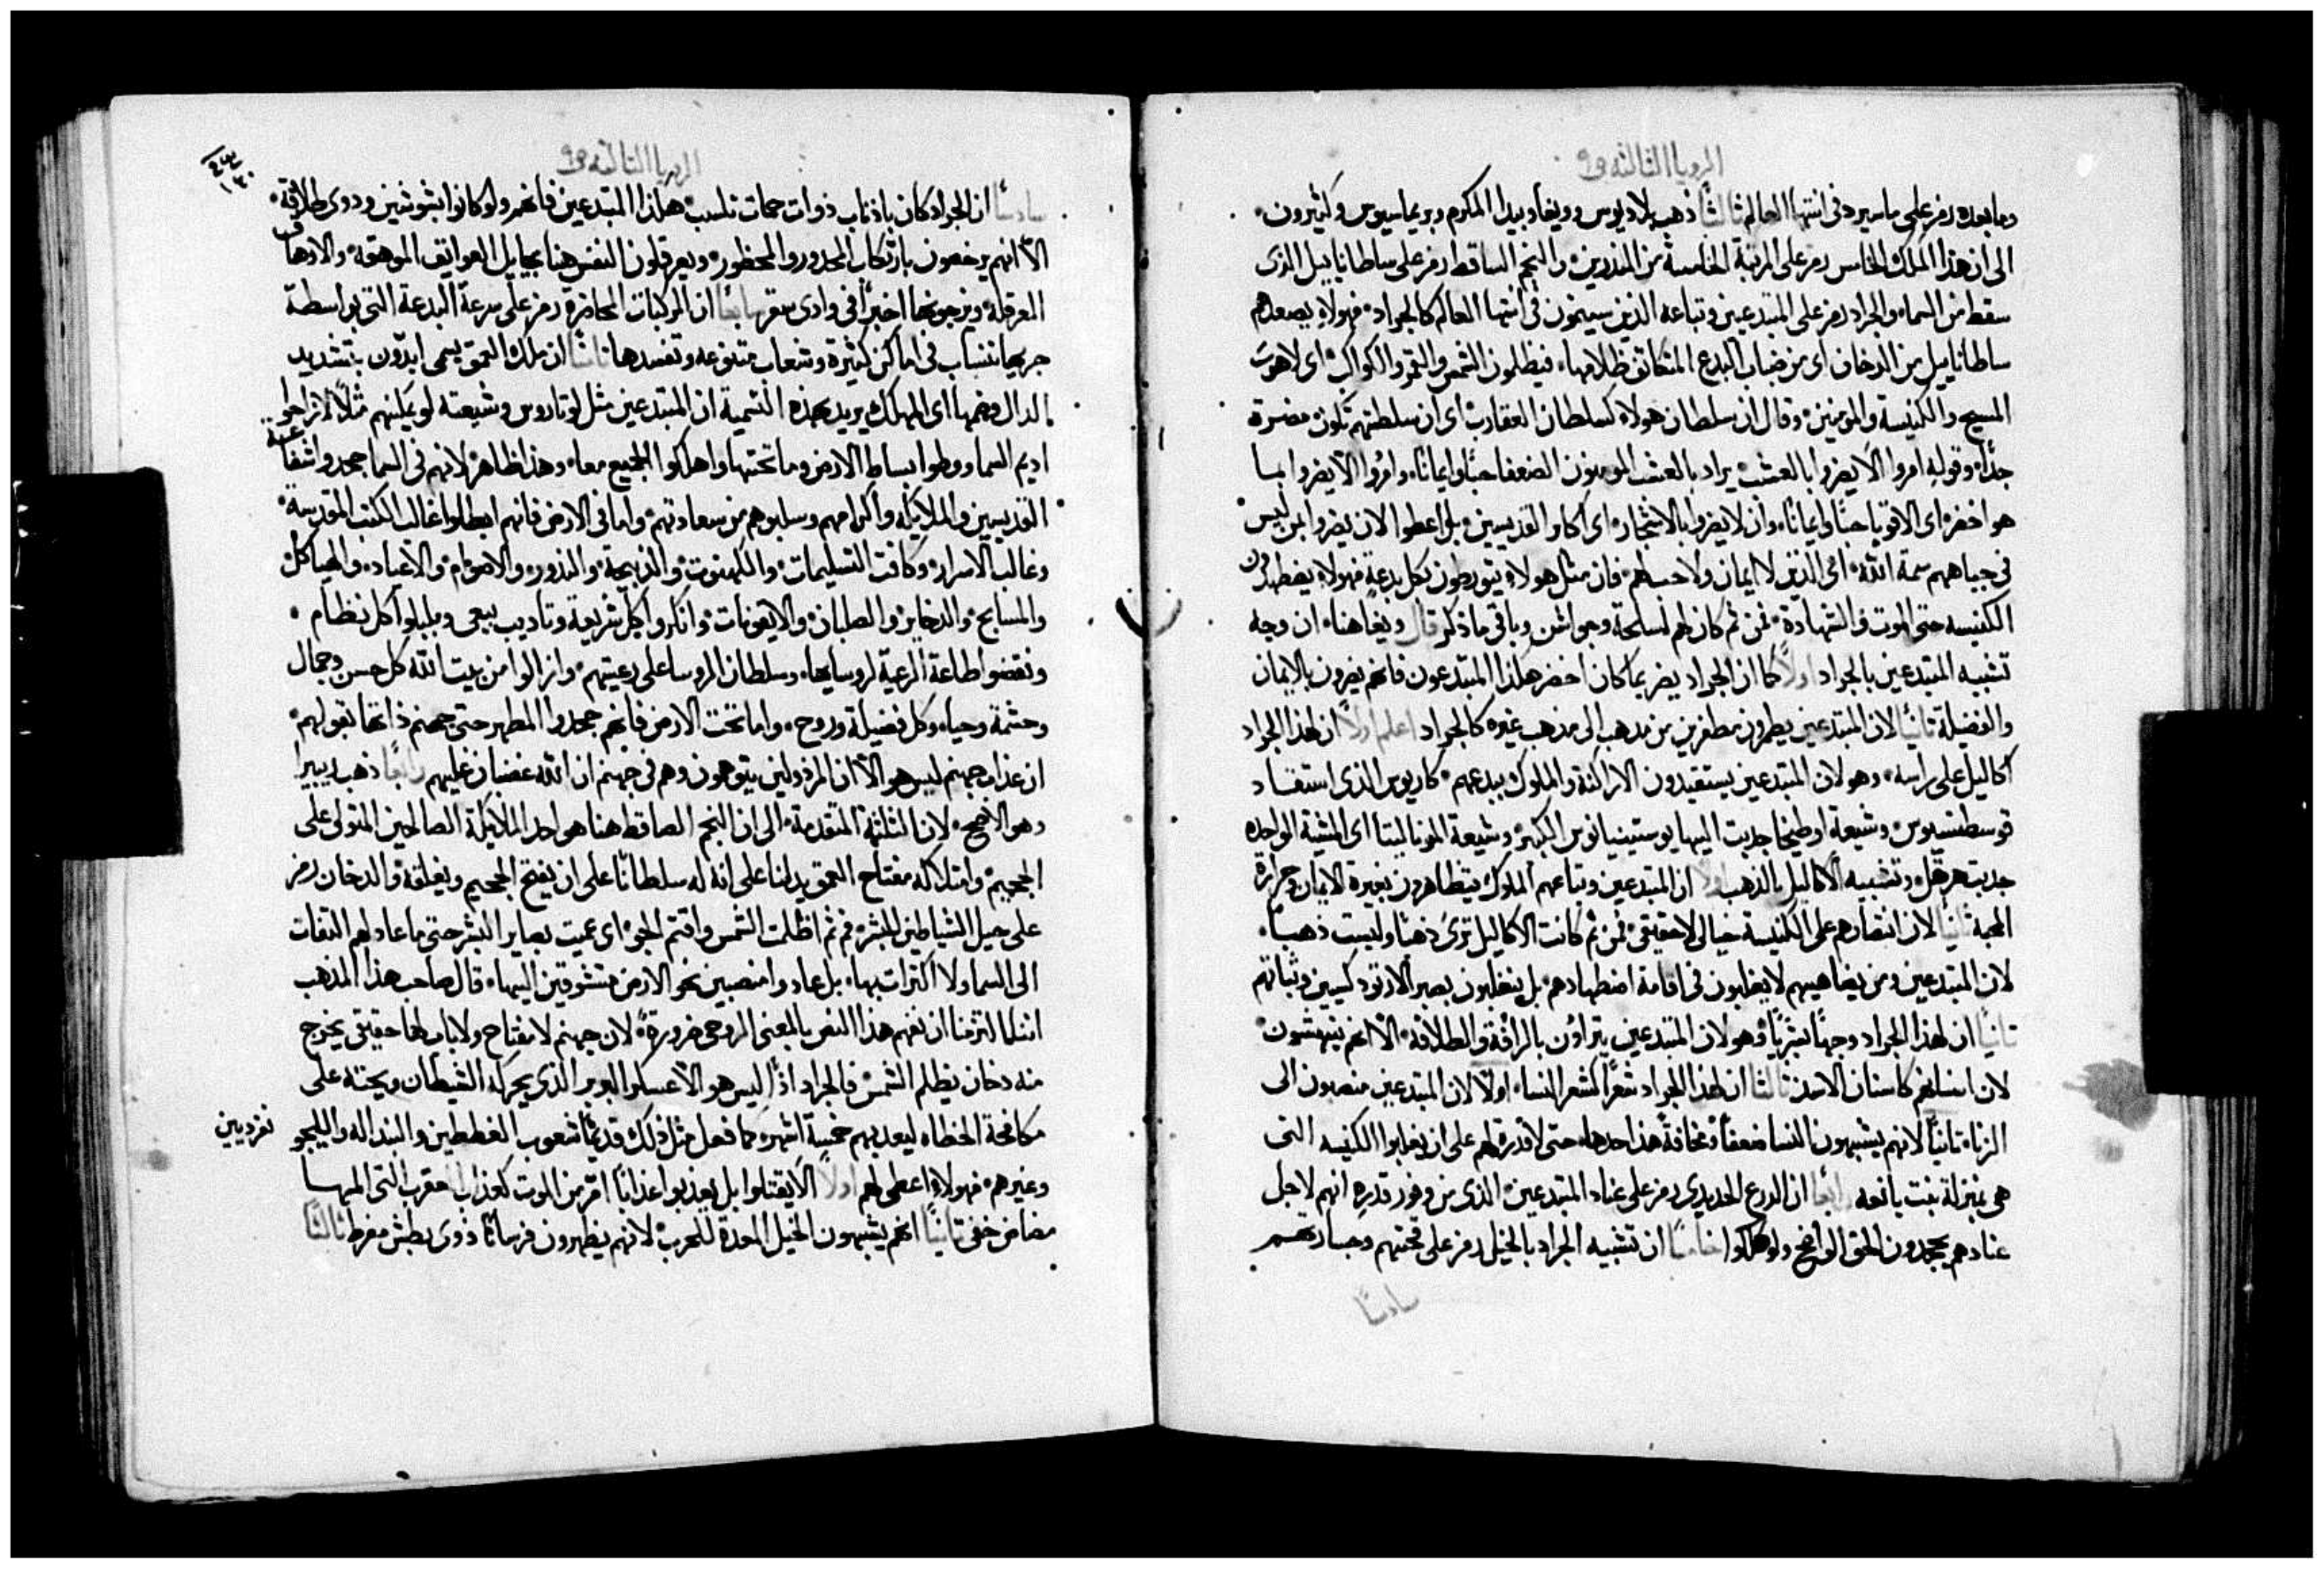 الرويا الثالثه ص٩
وما بعده رمز على ما سيرد في انتها العالم ثالثاً ذهب بلاديوس وويغاد وبيدا المكرم وبريماسيوس وكثيرون
الى ان هذا الملاك الخامس رمز على المرتبة الخامسة من المنذرين والنجم الساقط رمز على ساطانابيل الذى
سقط من السماء والجراد رمز على المبتدعين وتباعه الذين سينمون في انتها العالم كالجراد فهولاء يصعدهم
ساطانابيل من الدخان اى من ضباب البدع المتكاثف ظلامها فيظلمون الشمس والقمر والكواكب اى لاهوت
المسيح والكنيسة والمومنين وقال ان سلطان هولاء كسلطان العقارب اى ان سلطتهم تكون مضرة
جداً وقوله امروا الا يضروا بالعشب يراد بالعشب المومنون الضعفا حباً وايماناً وامروا الا يضروا بما
هو اخضر اى الاقويا حباً وايماناً وان لا يضروا بالاشجار اى اكابر القديسين بل اعطوا الان يضروا بمن ليس
في جباههم سمة الله اى الذين لا ايمان ولا حب لهم فان مثل هولاء يتورطون بكل بدعة فهولاء يضطهدون
الكنيسه حتى الموت والشهادة فمن ثم كان لهم اسلحة وجواشن وباقى ما ذكر قال ويغا هنا ان وجه
تشبيه المبتدعين بالجراد اولاً كما ان الجراد يضر بما كان اخضر هكذا المبتدعون فانهم يضرون بالايمان
والفضيلة ثانياً لان المبتدعين يطمرون مطفرين من مذهب الى مذهب غيره كالجراد اعلم اولاً ان لهذا الجراد
اكاليل على راسه وهو لان المبتدعين يستقيدون الاراكنة والملوك ببدعهم كاريوس الذى استقاد
قوسطنسيوس وشيعة اوطيخا جذبت اليها يوستينيانوس الكبير وشيعة المونالیتا اى المشية الواحده
جذبت هرقل وتشبيه الاكاليل بالذهب اولاً ان المبتدعين وتباعهم الملوك يتظاهرون بغيرة الايمان وحرارة
المحبة ثانياً لان انتصارهم على الكنيسة خيالى لا حقيقى فمن ثم كانت الاكاليل ترى ذهباً وليست ذهباً
لان المبتدعين ومن يضاهيهم لا يغلبون في اقامة اضطهادهم بل ينغلبون بصبر الارتودكسيين وثباتهم
ثانياً ان لهذا الجراد وجهاً بشرياً وهو لان المبتدعين يتراون بالرافة والطلاقة الا انهم ينهشون
لان اسنانهم كاسنان الاسد ثالثاً ان لهذا الجراد شعراً كشعر النساء اولاً لان المبتدعين منصبون الى
الزناء ثانياً لانهم يشبهون النسا ضعفاً وسخافةً هذا حدها حتى لا قدرة لهم على ان يغلبوا الكنيسه التى
هى بمنزلة بنت يانعه رابعاً ان الدرع الحديدى رمز على عناد المبتدعين الذى من وفور قدره انهم لاجل
عنادهم يجحدون الحق الواضح ولو هلكوا خامساً ان تشبيه الجراد بالخيل رمز على قحتهم وجسارتهم
سادساً
الرويا الثالثه ص٩
سادساً ان الجراد كان باذناب ذوات حمات تلسب هكذا المبتدعين فانهم ولو كانوا بشوشين وذوى طلاقة
الا انهم يرخصون بارتكاب المحذور والمحظور ويعرقلون النفس هنا بحبايل العوايق الموهقه والاوهاق
المعرقلة ويزجونها اخيراً في وادى سقر سابعاً ان المركبات المحاضرة رمز على سرعة البدعة التى بواسطة
جريها تنساب في اماكن كثيرة وشعاب متنوعه وتفسدها ثامناً ان ملاك العمق يسمى ابدّون بتشديد
الدال وضمها اى المهلك يريد بهذه التسمية ان المبتدعين مثل لوتاروس وشيعته لو يمكنهم مثلاً لازاحوا
اديم السما وطووا بساط الارض وما تحتها واهلكوا الجميع معاً وهذا ظاهر لانهم في السما جحدوا شفاعة
القديسين والملايكه واكرامهم وسلبوهم من سعادتهم واما في الارض فانهم ابطلوا غالب الكتب المقدسة
وغالب الاسرار وكافة التسليمات والكهنوت والذبيحة والنذور والاصوام والاعياد والهياكل
والمسابح والدخاير والصلبان والايقونات وانكروا كل شريعة وتاديب بيعى وبلبلوا كل نظام
ونقضوا طاعة الرعية لروسايها وسلطان الروسا على رعيتهم وازالوا من بيت الله كل حسن وجمال
وحشمة وحياء وكل فضيلة وروح واما تحت الارض فانهم جحدوا المطهر حتى جهنم ذاتها بقولهم
ان عذاب جهنم ليس هو الا ان المرذولين يتوهمون وهم في جهنم ان الله غضبان عليهم رابعاً ذهب ريبيرا
وهو الاصح لان الثلثة المتقدمة الى ان النجم الساقط هنا هو احد الملايكة الصالحين المتولى على
الجحيم وامتلاكه مفتاح العمق يدلنا على انه له سلطاناً على ان يفتح الجحيم ويغلقه والدخان رمز
على حيل الشياطين للبشر فمن ثم اظلمت الشمس واقتم الجو اى عميت بصاير البشر حتى ما عاد لهم التفات
الى السما ولا اكتراث بها بل عادوا منصبين نحو الارض متشوقين اليها قال صاحب هذا المذهب
اننا التزمنا ان نفهم هذا النص بالمعنى الروحى ضرورةً لان جهنم لا مفتاح ولا باب لها حقيقى يخرج
منه دخان يظلم الشمس فالجراد اذاً ليس هو الا عسكر البربر الذى يحركه الشيطان ويحثه على
مكافحة الخطاه ليعذبهم خمسة اشهر كما فعل مثل ذلك قديماً شعوب الغططين والبنداله والليجو
نغرديين
وغيرهم فهولاء اعطى لهم اولاً الا يقتلوا بل يعذبوا عذاباً اقر من الموت كعذاب العقرب التى المها
مضاض خفى ثانياً انهم يشبهون الخيل المعدة للحرب لانهم يظهرون فرساناً ذوى بطش مفرط ثالثاً